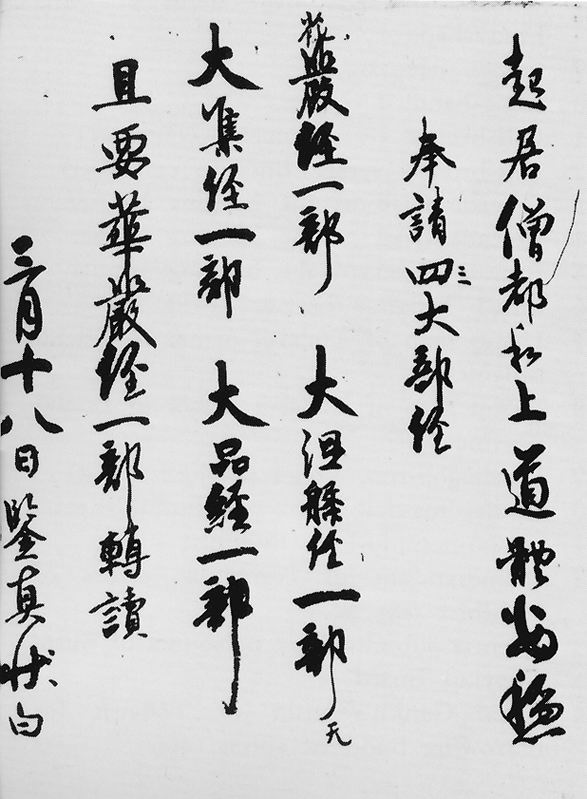 起居僧都和上道體安穩
奉請四三大部經
花嚴經一部 大涅槃經一部 无
大集經一部 大品經一部
且要華嚴經一部轉讀
三月十八日鑒真状白